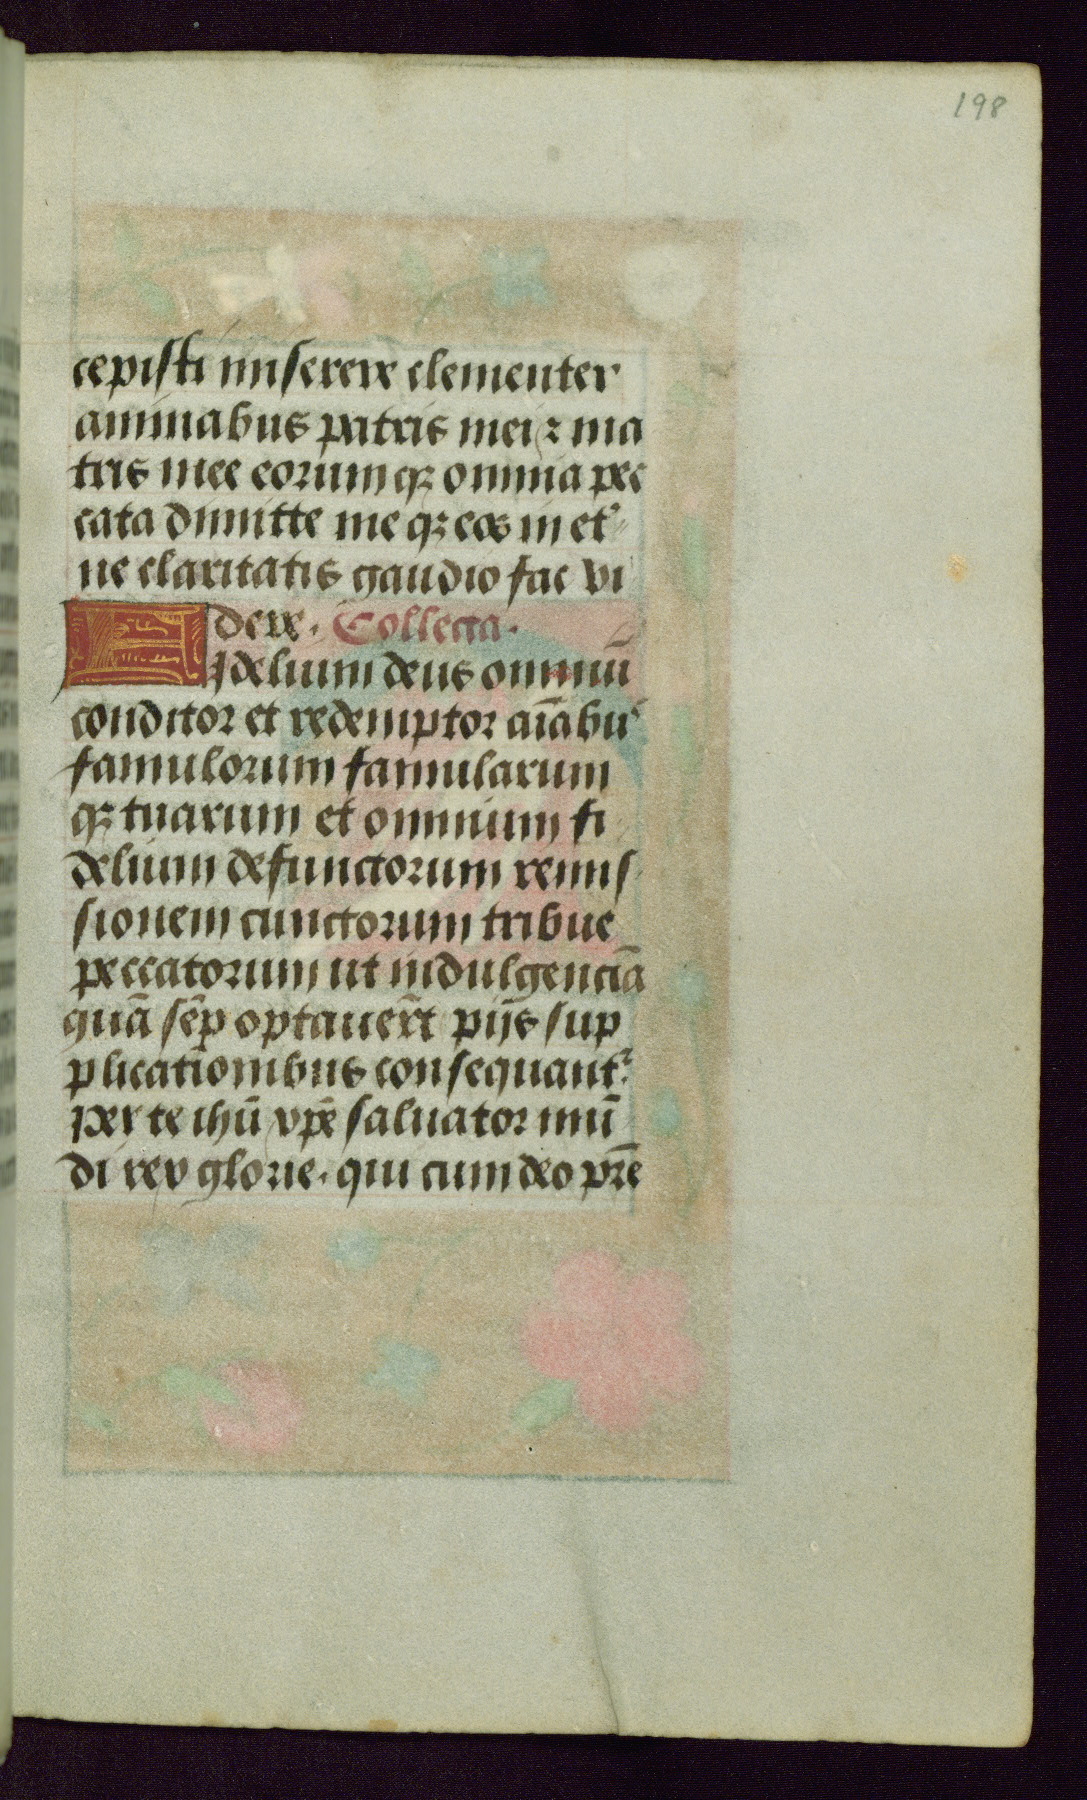 198
cepisti miserere clementer
animabus patris mei ⁊ ma
tris mee eorumqꝫ omnia pec
cata dimitte meqꝫ eos in et'
ne claritatis gaudio fac vi
dere. Collecta.
Fidelium deus omniū
conditor et redemptor aīabu'
famulorum famularum
qꝫ tuarum et omnium fi
delium defunctorum remis
sionem cunctorum tribue
peccatorum ut indulgenciā
quā sēp optauer̄t pijs sup
plicationibus consequant'.
Per te ihū xpē saluator mū
di rex glorie. qui cum deo pr̄e